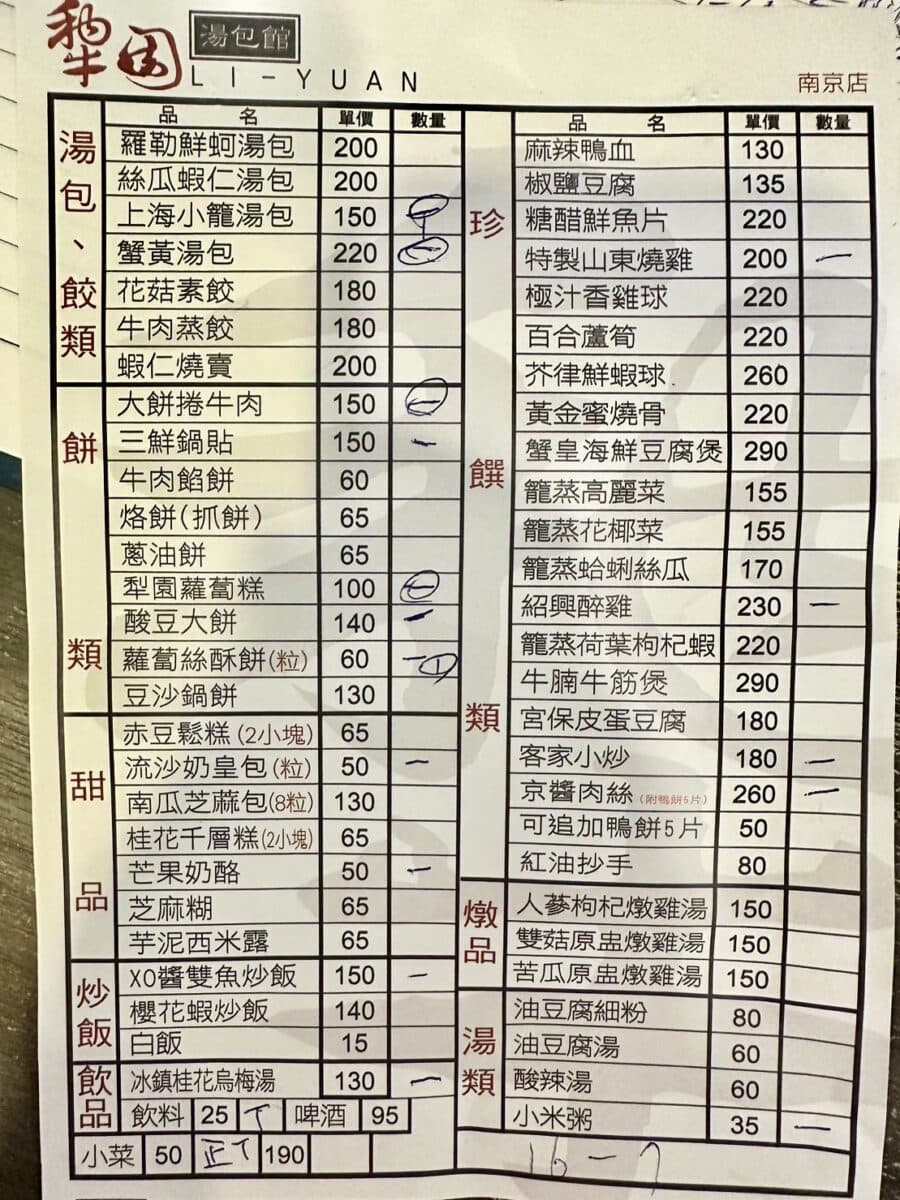 犁园 湯包館
LI-YUAN
南京店
品名 單價 數量
湯包、餃類
羅勒鮮蚵湯包 200
絲瓜蝦仁湯包 200
上海小籠湯包 150
蟹黃湯包 220 一
花菇素餃 180
牛肉蒸餃 180
蝦仁燒賣 200
餅類
大餅捲牛肉 150 一
三鮮鍋貼 150 一
牛肉餡餅 60
烙餅(抓餅) 65
蔥油餅 65
犁園蘿蔔糕 100 一
酸豆大餅 140 一
蘿蔔絲酥餅(粒) 60 一
豆沙鍋餅 130
甜品
赤豆鬆糕(2小塊) 65
流沙奶皇包(粒) 50 一
南瓜芝蔴包(8粒) 130
桂花千層糕(2小塊) 65
芒果奶酪 50 一
芝麻糊 65
芋泥西米露 65
炒飯
XO醬雙魚炒飯 150 一
櫻花蝦炒飯 140
白飯 15
飲品
冰鎮桂花烏梅湯 130 一
飲料 25 丅 啤酒 95
小菜 50 正丅 190
品名 單價 數量
珍饌類
麻辣鴨血 130
椒鹽豆腐 135
糖醋鮮魚片 220
特製山東燒雞 200 一
極汁香雞球 220
百合蘆筍 220
芥律鮮蝦球 260
黃金蜜燒骨 220
蟹皇海鮮豆腐煲 290
籠蒸高麗菜 155
籠蒸花椰菜 155
籠蒸蛤蜊絲瓜 170
紹興醉雞 230 一
籠蒸荷葉枸杞蝦 220
牛腩牛筋煲 290
宮保皮蛋豆腐 180
客家小炒 180 一
京醬肉絲(附鴨餅5片) 260 一
可追加鴨餅5片 50
紅油抄手 80
燉品
人蔘枸杞燉雞湯 150
雙菇原盅燉雞湯 150
苦瓜原盅燉雞湯 150
湯類
油豆腐細粉 80
油豆腐湯 60
酸辣湯 60
小米粥 35 一
16-7